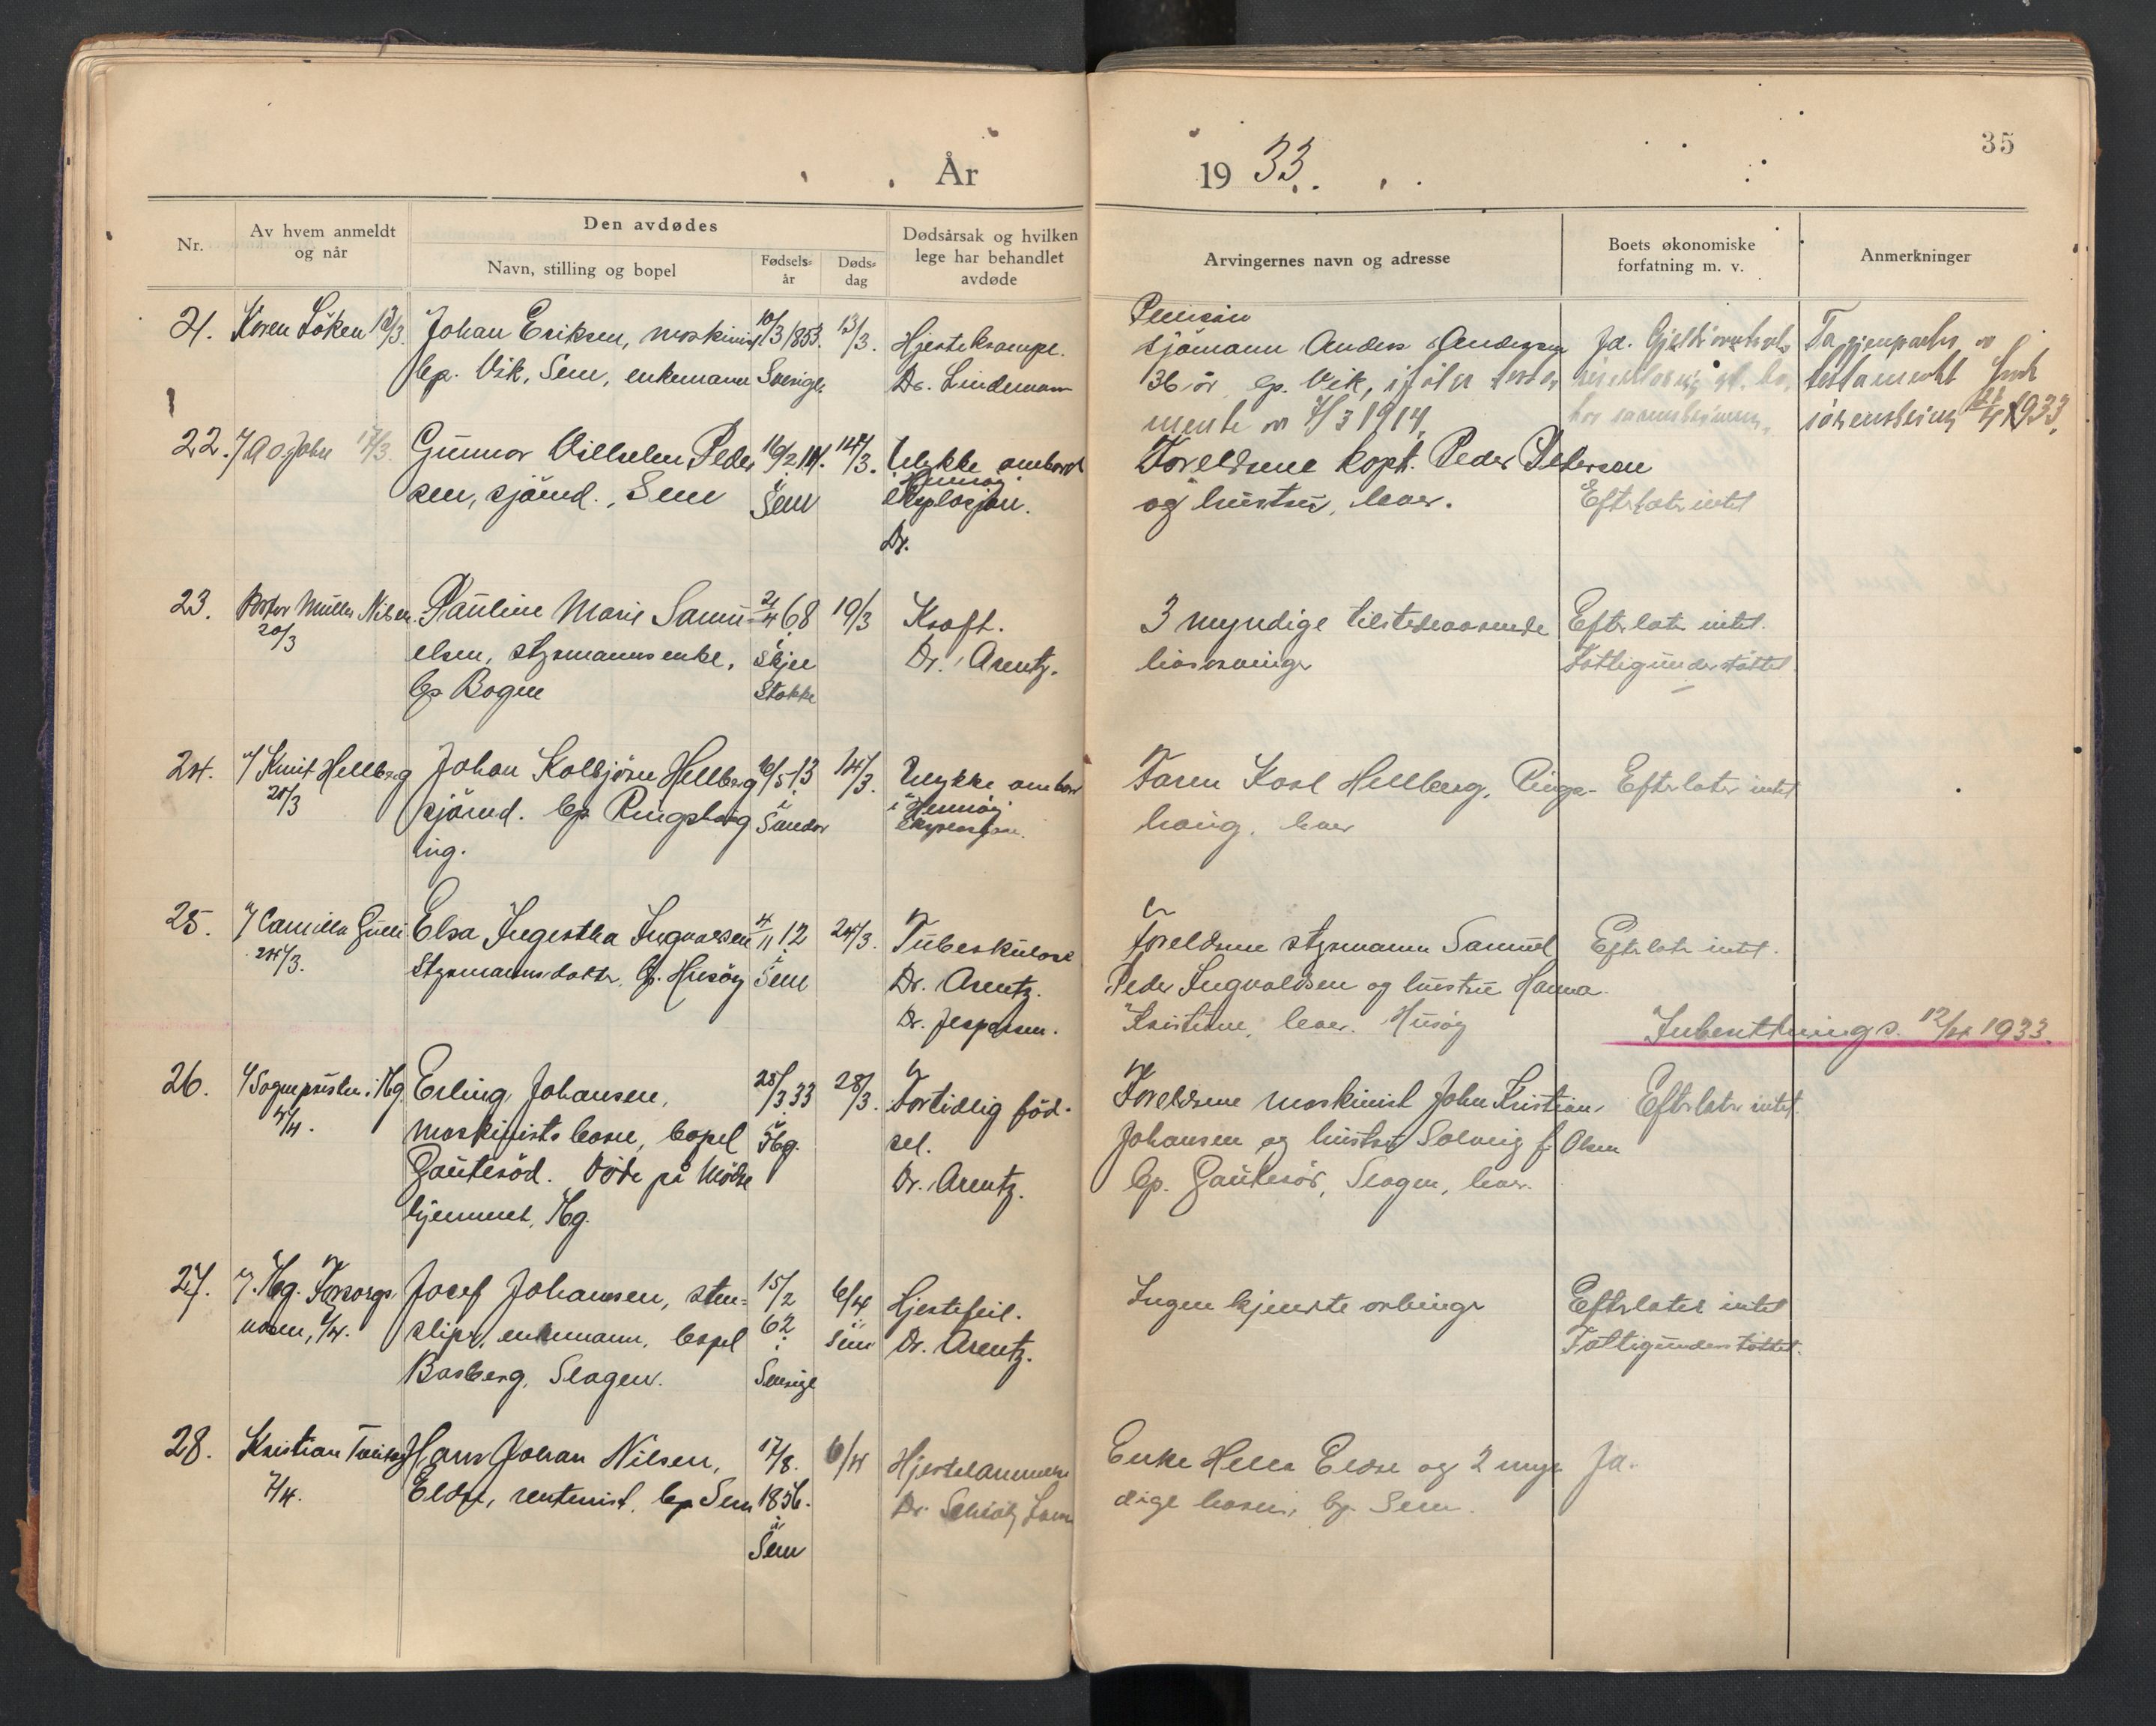 35
År 1933.
Nr.
Av hvem anmeldt
og når
Den avdødes
Navn, stilling og bopel
Fødsels=
år
Døds=
dag
Dødsårsak og hvilken
lege har behandlet
avdøde
Arvingernes navn og adresse
Boets økonomiske
forfatning m. v.
Anmerkninger
21. Karen Löken 13/3.
Johan Eriksen, maskinist
bp. Vik, Sem, enkemann
10/3 1853.
Sverige
13/3.
Hjertekrampe.
Dr. Lindemann
sjömann Anders Andersen
36 år, bp. Vik, ifölge
mente 7/3 1914.
Ja.
testamentet
1933.
22. John 17/3
Gunnar Vilhelm Peder
sen, sjömd., Sem
16/2 14.
i
Sem
14/3.
Ulykke ombord
i Hennöy
eksplosjon.
Dr.
Foreldrene kapt. Peder Pedersen
og hustru, lever.
Efterlater intet
23. Pastor Müller Nilsen
20/3
Pauline Marie Samu=
elsen, styrmannsenke,
bp Bogen
21/4 68
i
Skjee
Stokke
19/3
Kreft.
Dr. Arentz.
3 myndige tilstedeværende
livsarvinger
Efterlater intet.
Fattigunderstöttet.
24. Knut Hellberg
21/3
Johan Kolbjörn Hellberg
sjömd. bp Ringshaug
ing.
16/5 13
i
Sandar
14/3.
Ulykke ombord
i Hennöy
eksplosjon.
Faren Karl Hellberg, Rings-
haug, lever
Efterlater intet
25. Camilla Gulli
24/3.
Elsa Ingertha Ingvaldsen
Styrmannsdatter, bp. Husöy
4/11 12
i
Sem
24/3.
Tuberkulose
Dr. Arentz.
Dr. Jespersen.
Foreldrene styrmann Samuel
Peder Ingvaldsen og hustru Hanna
Kristine, lever. Husöy
Efterlater intet.
Innberetning s. 12/4 1933.
26. Sognepresten i Tbg.
Erling Johansen,
maskinists barn, bopel
Gauteröd. Döde på Mödre
hjemmet, Tbg.
28/3 33
i
Tbg.
28/3.
Fortidlig föd-
sel.
Dr. Arentz.
Foreldrene maskinist John Kristian
Johansen og hustru Solveig f. Olsen
bp. Gauteröd, Slagen, lever.
Efterlater intet
27. Tbg. Forsorgs
vesen,
Josef Johansen, sten=
sliper, enkemann, bopel
Basberg, Slagen.
15/2
62
i
Sverige
6/4
i
Sem
Hjertefeil.
Dr. Arentz.
Ingen kjendte arvinger
Efterlater intet
Fattigunderstöttet.
28. Kristian
7/4.
Hans Johan Nilsen,
Eldre, rentenist, bp Sem
17/8.
1856.
i
Sem
6/4
Hjertelammelse
Dr. Schiötz
Enke Helle Eldre og 2 myn
dige barn, bp. Sem.
Ja.